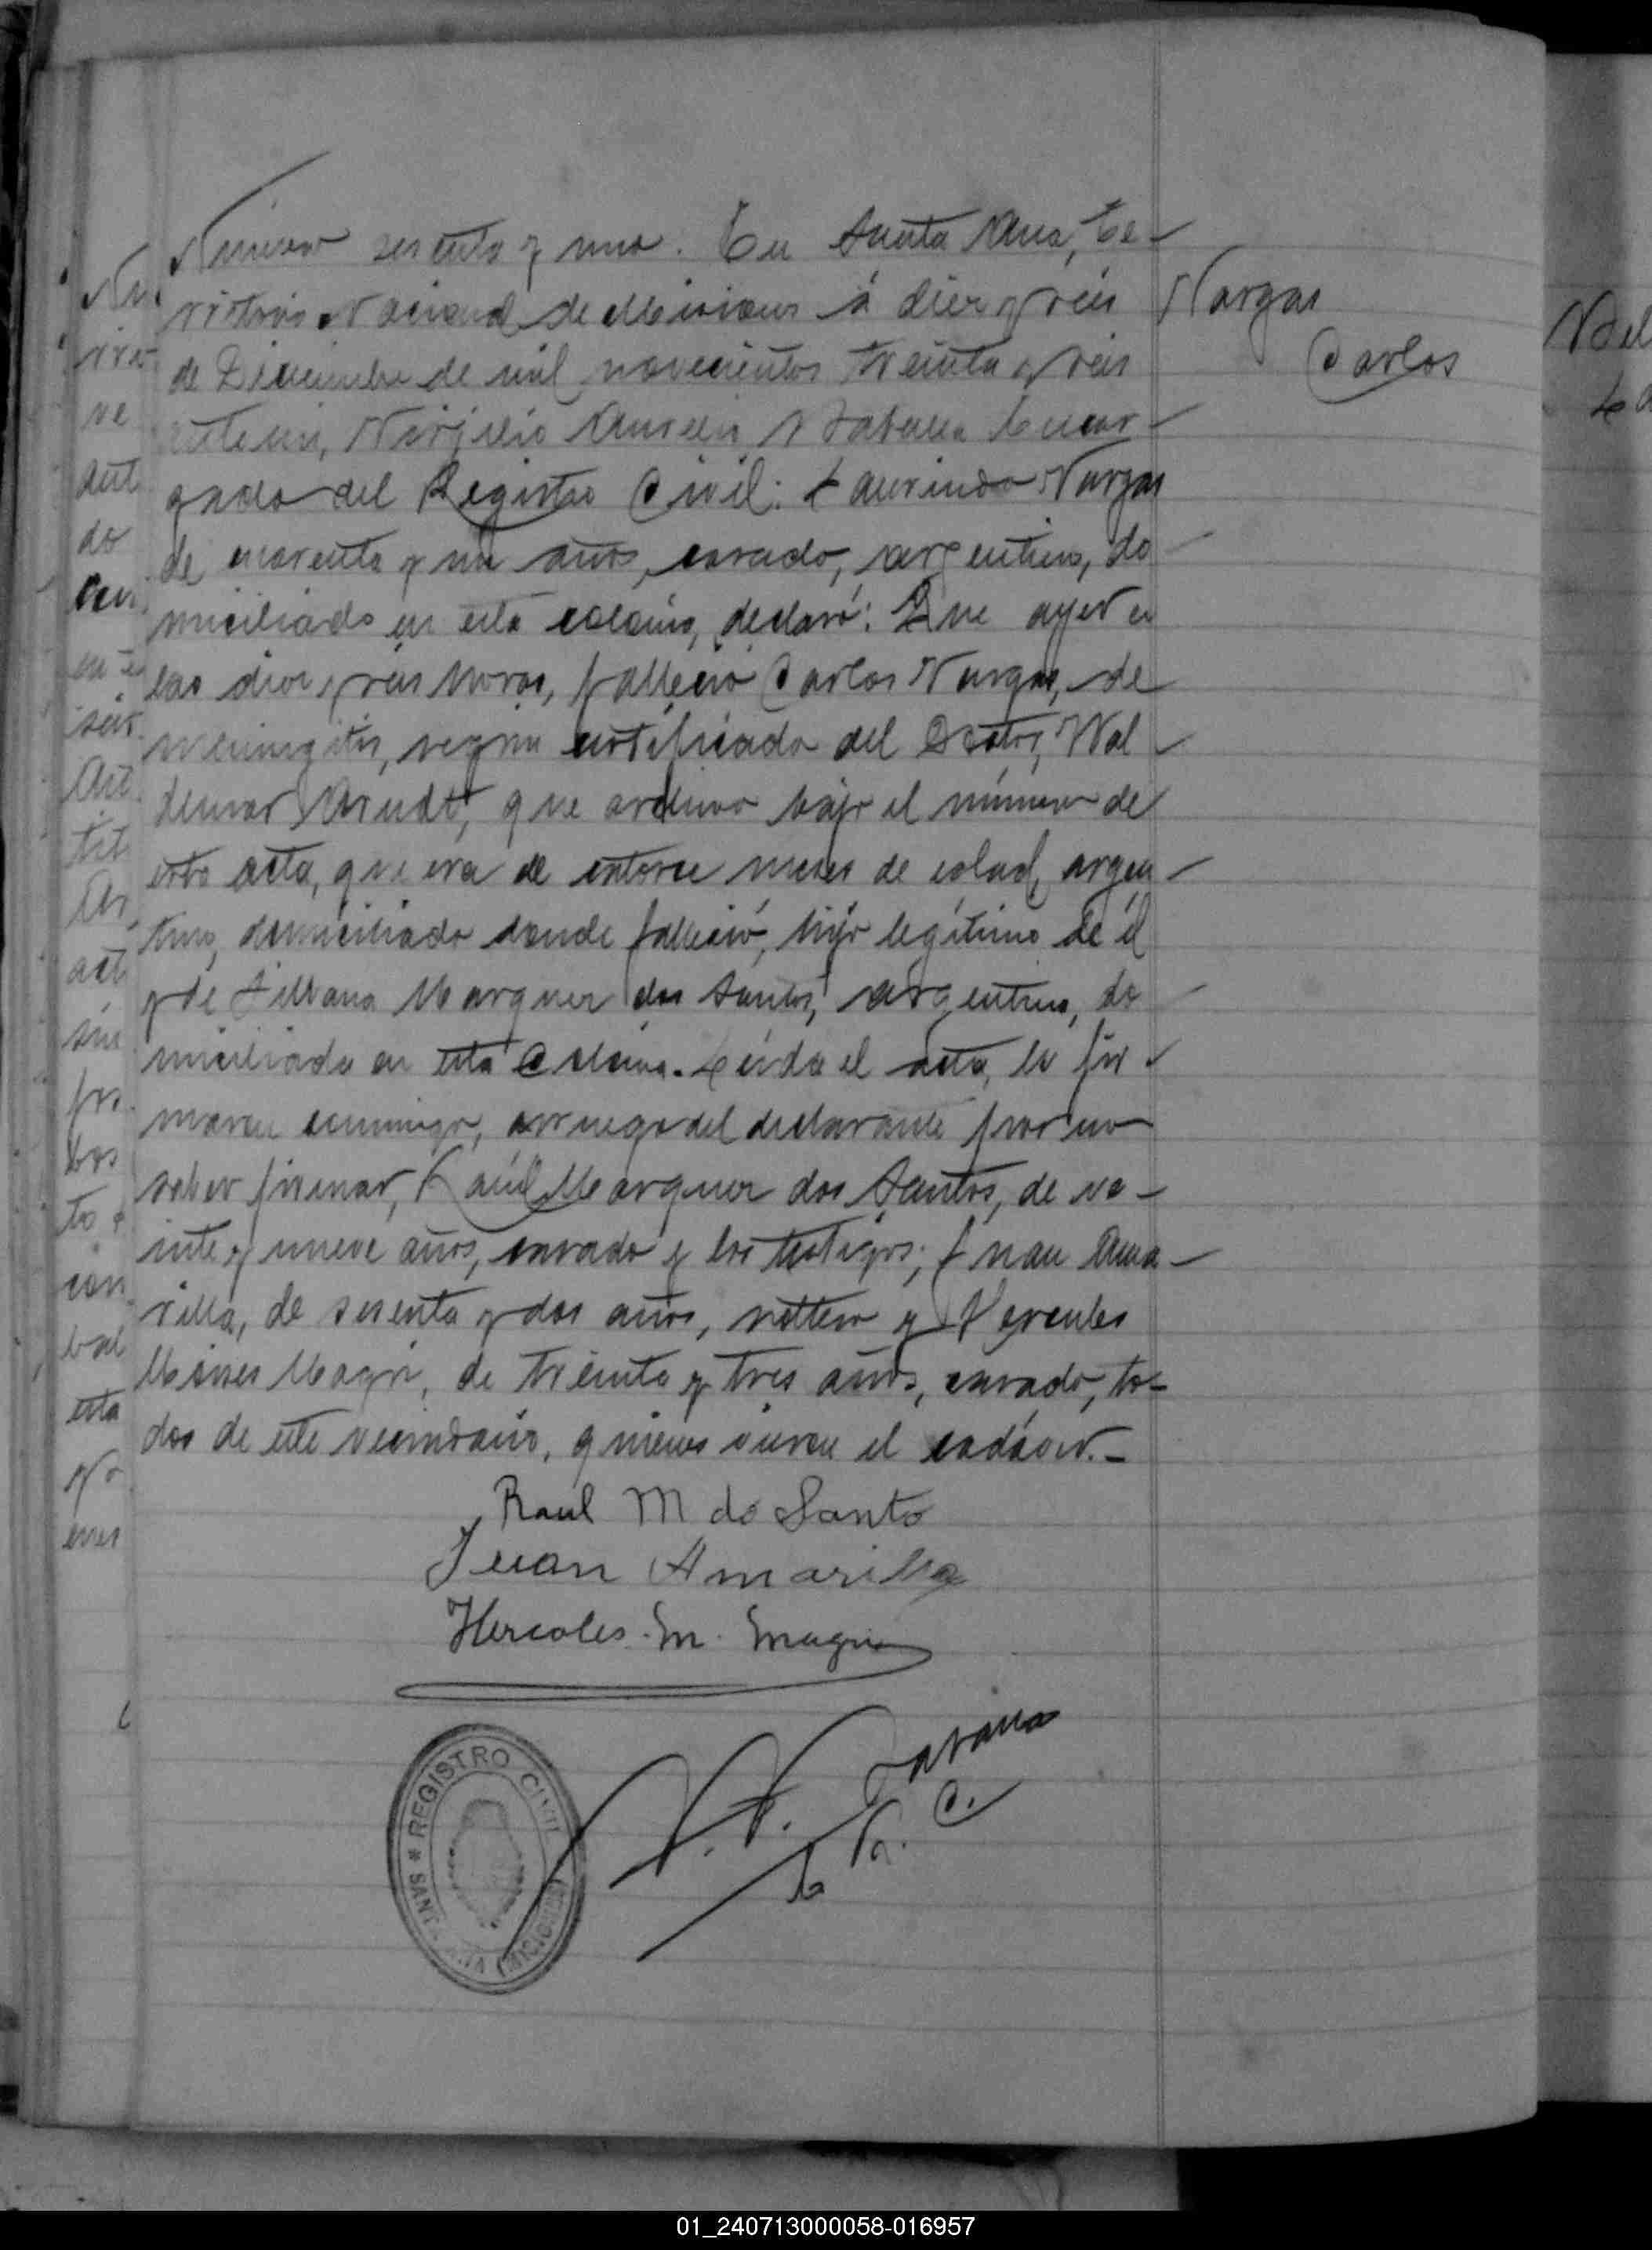 Número sesenta y uno. En Santa Ana, Te-
rritorio Nacional de Misiones á diez y seis
de Diciembre de mil novecientos treinta y seis
ante mi, Virjilio Aurelio Encar-
gado del Registro Civil: Laurindo Vargas
de cuarenta y un años, casado, argentino, do
miciliado en esta colonia, declaró: Que ayer a
las diez y seis horas, falleció Carlos Vargas, de
meningitis, según certificado del Doctor, Wal
demar Arndt, que archivo bajo el número de
esta acta, que era de catorce meses de edad, argen
tino, domiciliado donde falleció, hijo legítimo de él
y de Silvana Marquez dos Santos, argentina, do
miciliada en esta Colonia. Leída el acta, la fir
maron conmigo, a ruego del declarante por no
saber firmar, Raúl Marquez dos Santos, de ve-
inte y nueve años, casado y los testigos; Juan Ama-
rilla, de sesenta y dos años, soltero y Hercules
Moises Magri, de treinta y tres años, casado, to-
dos de este vecindario, quienes vieron el cadáver.-
Raul M do Santo
Juan Amarilla
Hercoles. M. Magri
E. R. C.
REGISTRO CIVIL
* SANTA ANA (MISIONES)
Vargas
Carlos
01_240713000058-016957